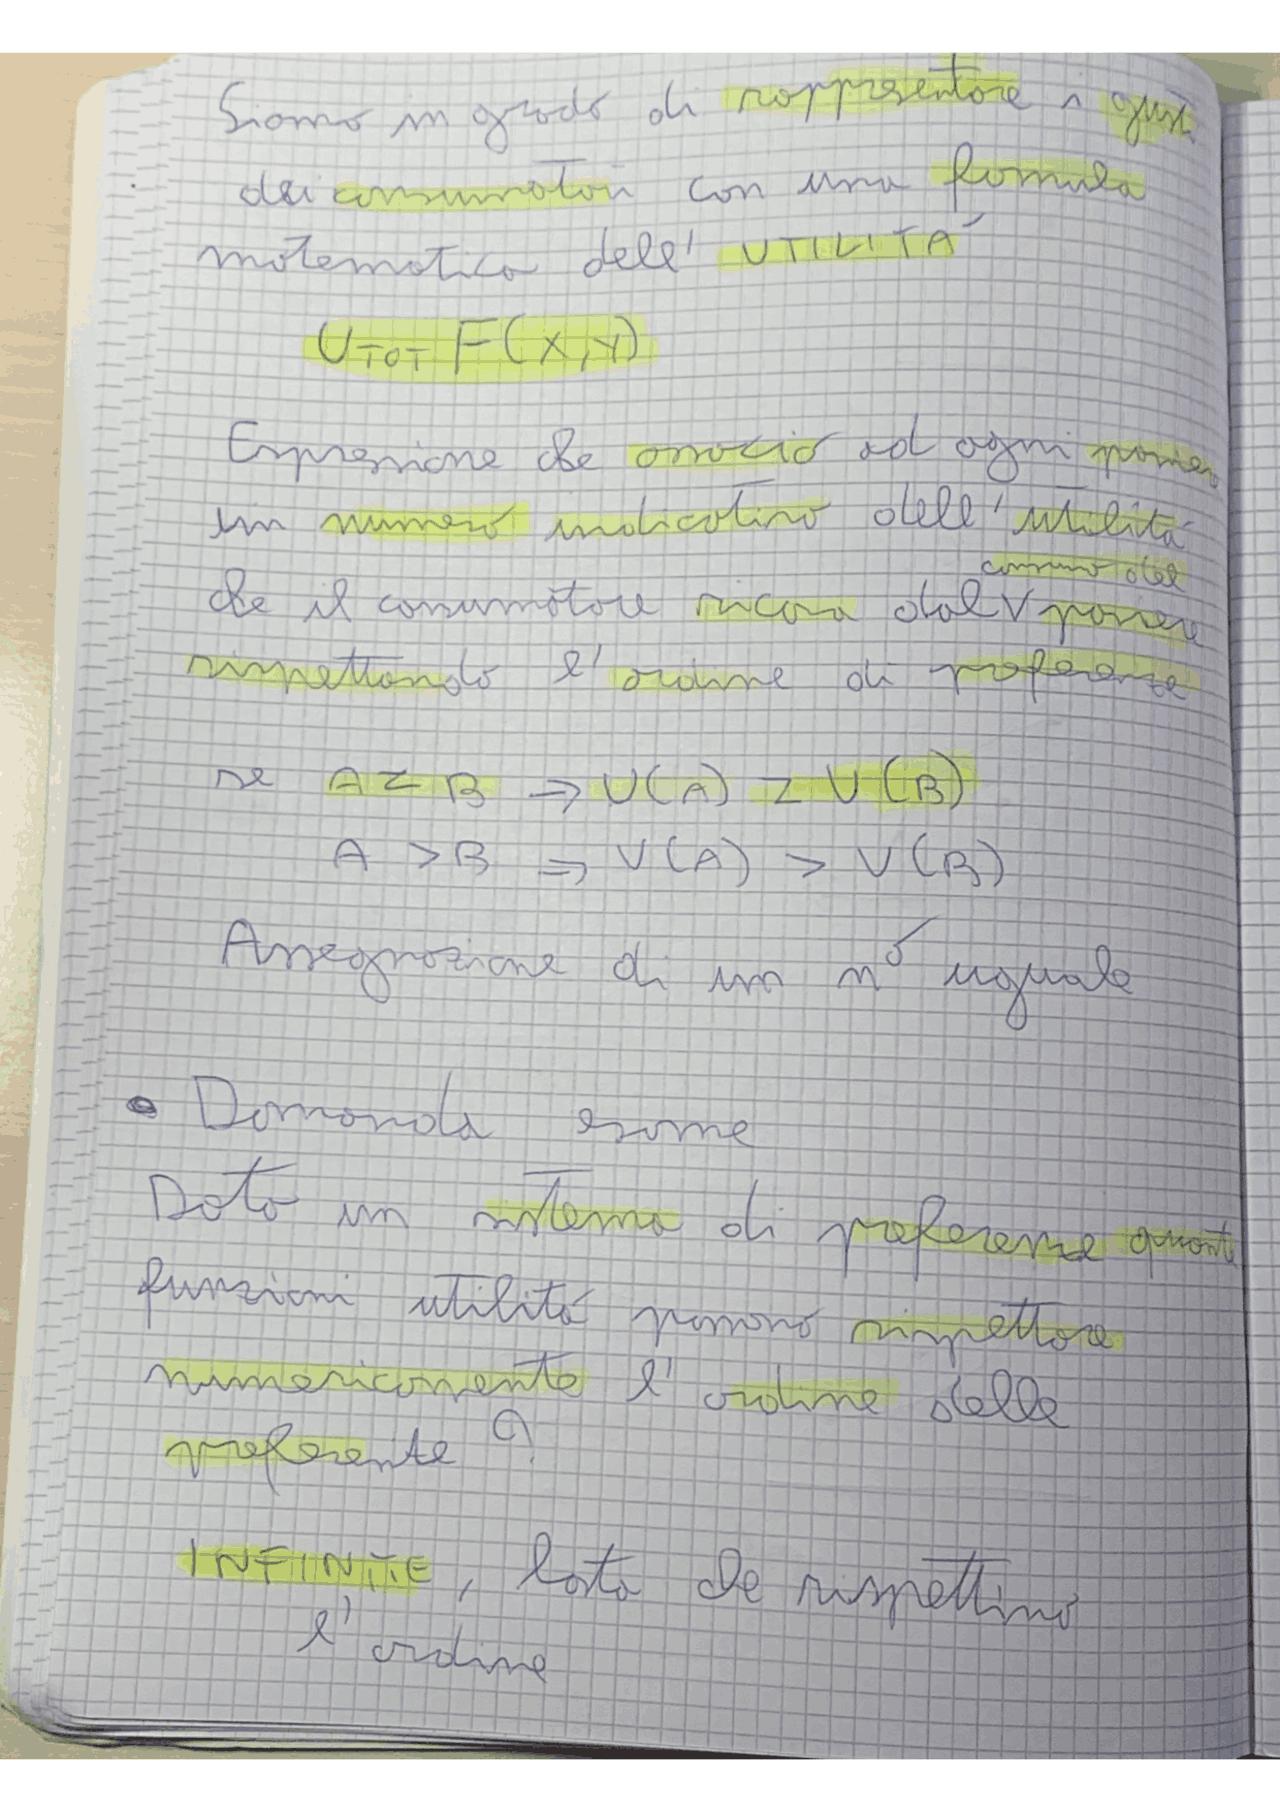 Siamo in grado di rappresentare i gusti
dei consumatori con una formula
matematica dell' UTILITÁ
UTOT F(X,Y)
Espressione che associa ad ogni paniere
un numero indicativo dell'utilitá
consumo del
che il consumatore ricava dal V paniere
rispettando l'ordine di preferenze
se A ≥ B => U(A) ≥ U(B)
A > B => U(A) > U(B)
Assegnazione di un n° uguale
• Domanda esame
Dato un sistema di preferenze quante
funzioni utilitá possono rispettare
numericamente l'ordine delle
preferenze?
INFINITE, basta che rispettino
l'ordine